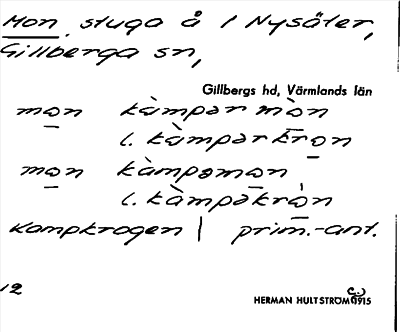 Mon, stuga å i Nysäter,
Gillberga sn,
Gillbergs hd, Värmlands län
mon kàmpar mòn
l. kàmpar kròn
mon kàmpəmon
l. kàmpəkròn
kampkrogen | prim.-ant.
12
HERMAN HULTSTRÖM (c.) 1915